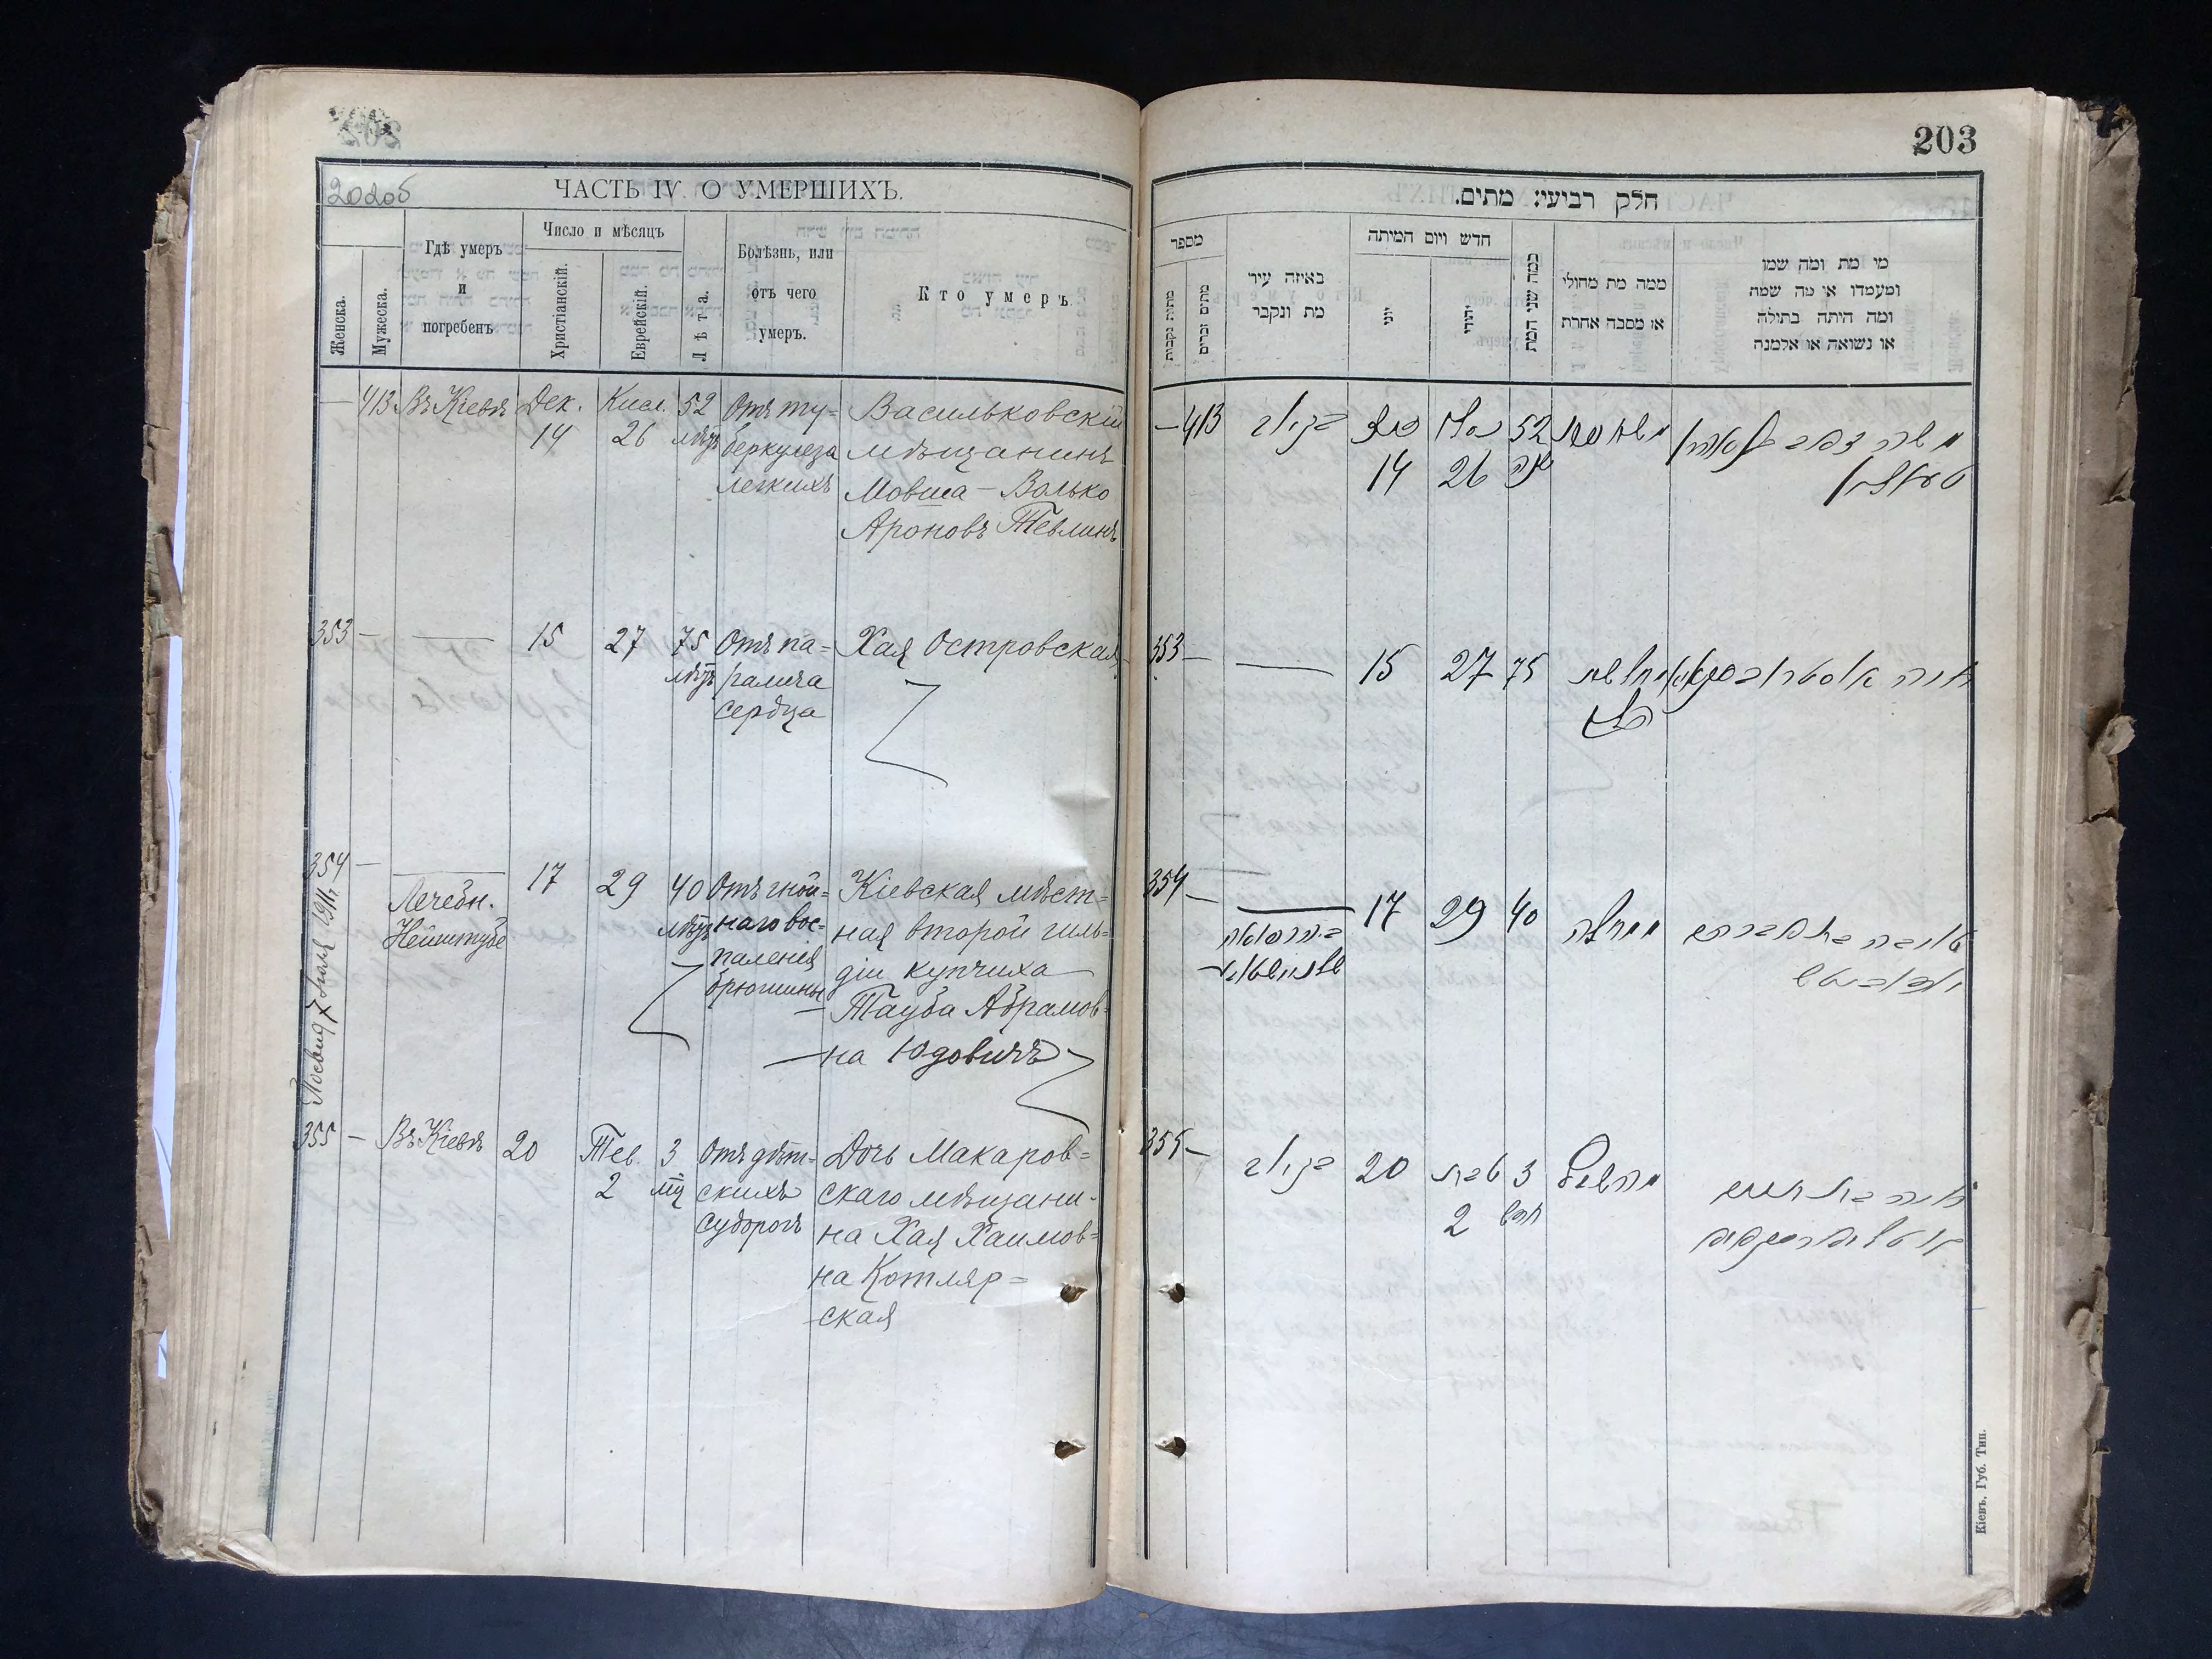 202об
ЧАСТЬ IV. О УМЕРШИХЪ.
Женска.
Мужеска.
Гдѣ умеръ
и
погребенъ
Число и мѣсяцъ
Христіанскій.
Еврейскій.
Лѣта.
Болѣзнь, или
отъ чего
умеръ.
Кто умеръ.
— 413 Въ Кіевѣ Дек. 14 Кисл. 26 52 лѣтъ
Отъ ту=
беркулеза
легкихъ
Васильковскій
мѣщанинъ
Мовша-Волько
Ароновъ Тевлинъ
353 — — 15 27 75 лѣтъ
Отъ па=
ралича
сердца
Хая Островская
354 — —
Лечебн.
Нейштубе
17 29 40 лѣтъ
Отъ гной=
наго вос=
паленія
брюшины
Кіевская мѣст=
ная второй гиль=
діи купчиха
Тауба Абрамов=
на Юдовичъ
7 1911г.
355 — Въ Кіевѣ 20 Тев. 2 3 мц
Отъ дѣт=
скихъ
судорогъ
Дочь Макаров=
скаго мѣщани=
на Хая Хаимов=
на Котляр=
ская
203
חלק רביעי: מתים.
מספר
מתות נקבות
מתים זכרים
באיזה עיר
מת ונקבר
חדש ויום המיתה
יוני
יהודי
כמה שני המת
ממה מת מחולי
או מסבה אחרת
מי מת ומה שמו
ומעמדו או מה שמה
ומה היתה בתולה
או נשואה או אלמנה
— 413 קיוב 14 26 52
353 — — 15 27 75
חיה אסטראווסקא
354 — — 17 29 40
טויבה בת אברהם
יודאוויטש
355 — קיוב 20 טבת 2 3
חיה בת חיים
Кіевъ, Губ. Тип.